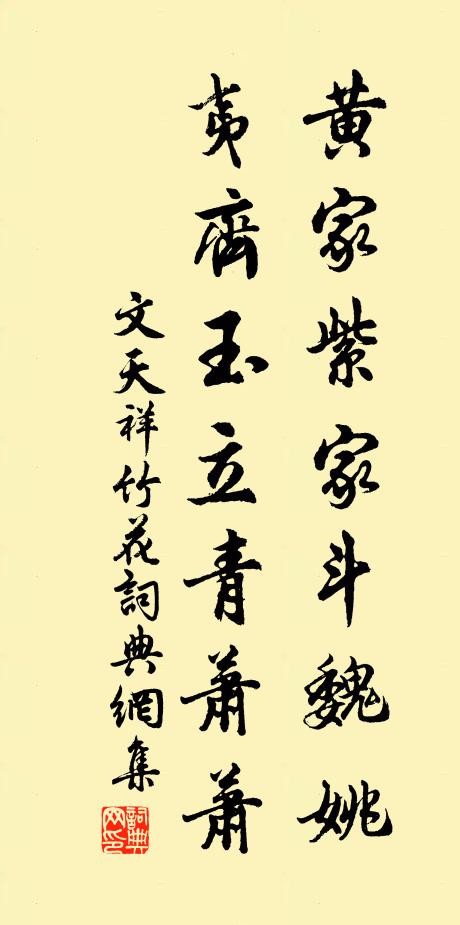 黃家紫家斗魏姚
夷齊玉立青蕭蕭
文天祥竹花詞典網集
詞典网印